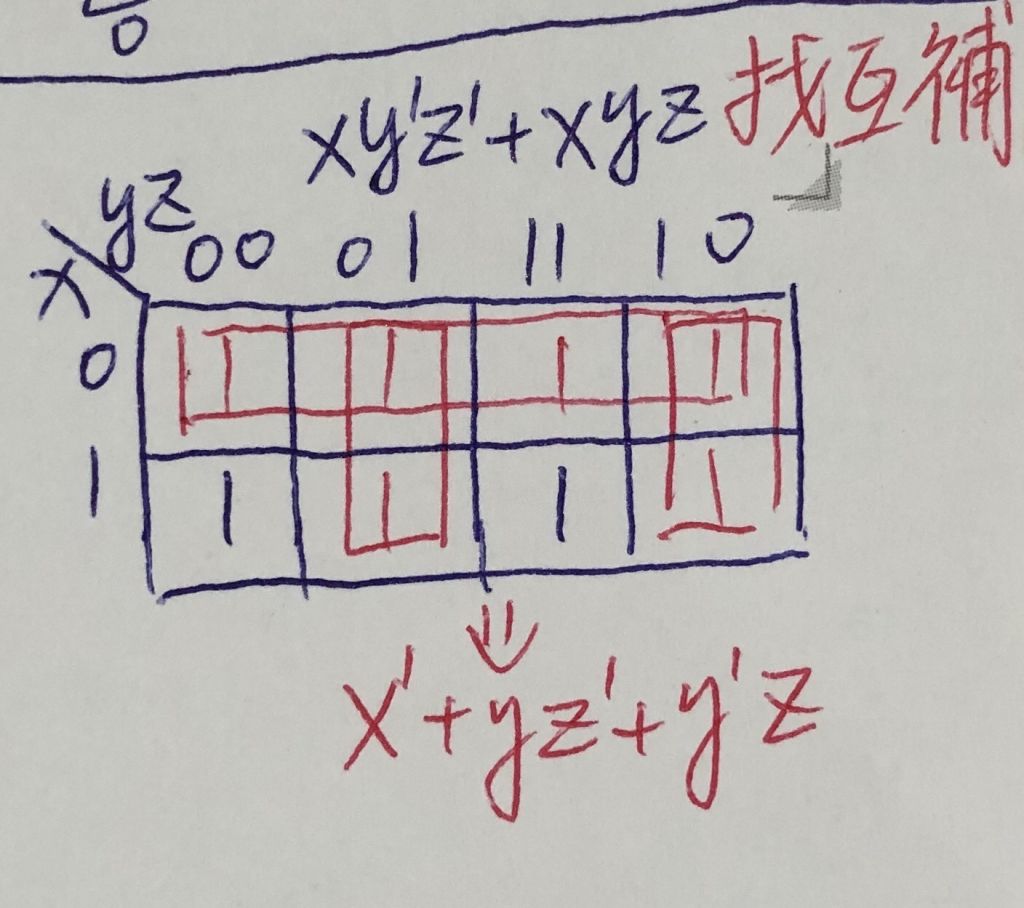 0
xy'z'+xyz 找互補
yz
x
00 01 11 10
0 1 1 1 1
1 1 1 1 1
⇓
x'+yz'+y'z